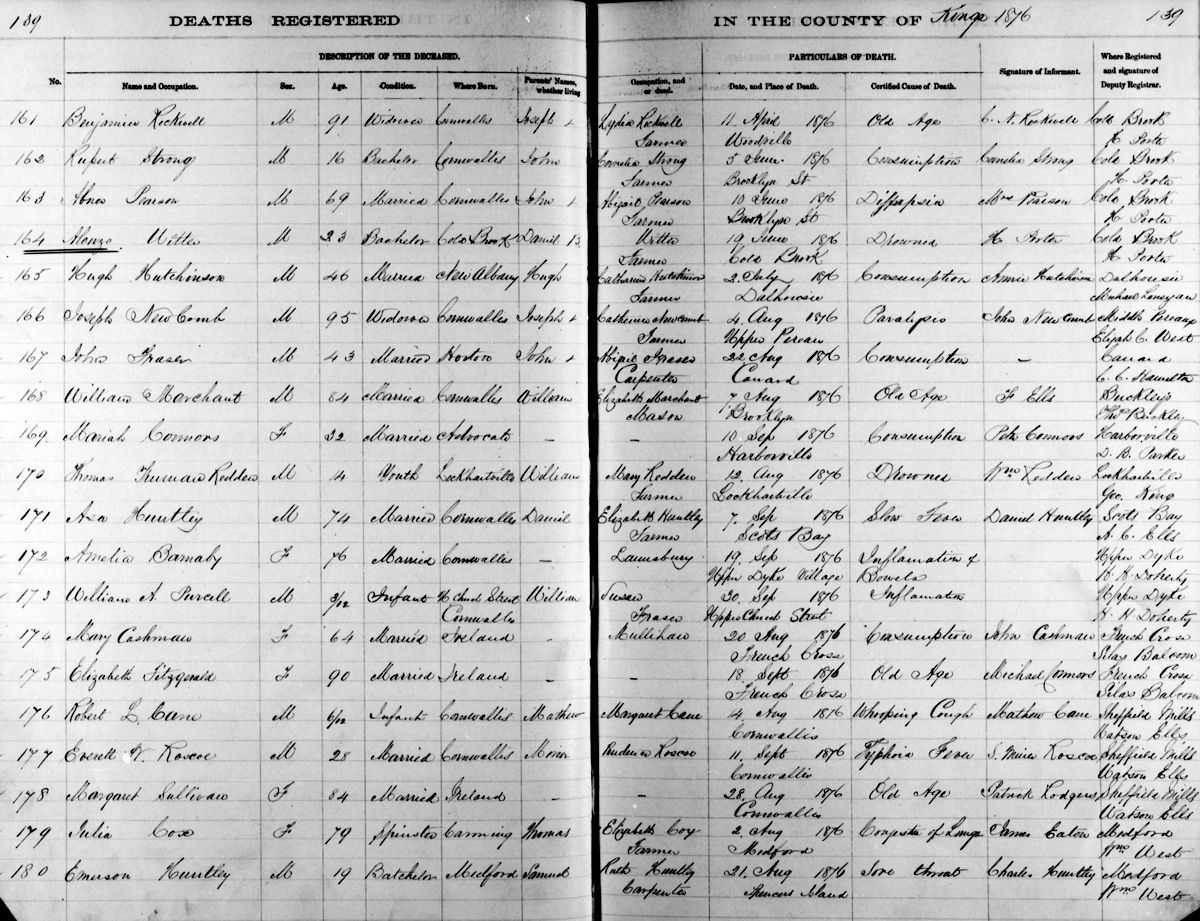 139 DEATHS REGISTERED IN THE COUNTY OF Kings 1876 139
DESCRIPTION OF THE DECEASED. PARTICULARS OF DEATH.
No. Name and Occupation. Sex. Age. Condition. Where Born. Parents' Names, whether living or dead. Occupation, and Date, and Place of Death. Certified Cause of Death. Signature of Informant. Where Registered and signature of Deputy Registrar.
161 Benjamin Rockwell M 91 Widower Cornwallis Joseph + Lydia Rockwell 11 April 1876 Old Age C. N. Rockwell Cold Brook
Farmer Woodville H Porter
162 Rupert Strong M 16 Bachelor Cornwallis John Cornelia Strong 5 June 1876 Consumption Cornelia Strong Cold Brook
Farmer Brooklyn St H. Porter
163 Abner Pearson M 69 Married Cornwallis John + Abigail Pearson 10 June 1876 Mrs Pearson Cold Brook
Farmer Brooklyn St H Porter
164 Alonzo Witter M 23 Bachelor Cold Brook Daniel B. Witter 19 June 1876 Drowned H. Porter Cold Brook
Farmer Cold Brook H Porter
165 Hugh Hutchinson M 46 Married New Albany Hugh Catharine Hutchinson 2 July 1876 Consumption Annie Hutchinson Dalhousie
Farmer Dalhousie Michael
166 Joseph NewComb M 95 Widower Cornwallis Joseph + Catherine Newcomb 4 Aug 1876 Paralysis John Newcomb Middle Pereaux
Farmer Upper Pereau Elijah C. West
167 John Fraser M 43 Married Horton John + Abigail Fraser 22 Aug 1876 Consumption — Canard
Carpenter Canard C. C. Hamilton
168 William Marchant M 84 Married Cornwallis William Elizabeth Marchant 7 Aug 1876 Old Age F Ells Buckleys
Mason Brooklyn Thos Buckley
169 Mariah Connors F 32 Married Advocate — — 10 Sep 1876 Consumption Peter Connors Harborville
Harborville D. B. Parker
170 Thomas Truman Redden M 14 Youth Lockhartville William Mary Redden 12 Aug 1876 Drowned Wm Redden Lockhartville
Farmer Lockhartville Geo. King
171 Asa Huntley M 74 Married Cornwallis Daniel Elizabeth Huntley 7 Sep 1876 Slow Fever Daniel Huntley Scots Bay
Farmer Scots Bay A. C. Ells
172 Amelia Barnaby F 76 Married Cornwallis — Launsbury 19 Sep 1876 Inflamation of Upper Dyke
Upper Dyke Village Bowels H. H. Doherty
173 William A. Purcell M 3/12 Infant W Church Street William Susan 30 Sep 1876 Inflamation Upper Dyke
Cornwallis Fraser Upper Church Street H. H Doherty
174 Mary Cashman F 64 Married Ireland - Mullihan 20 Aug 1876 Consumption John Cashman French Cross
French Cross Silas Balcom
175 Elizabeth Fitzgerald F 90 Married Ireland — — 18 Sept 1876 Old Age Michael Connors French Cross
French Cross Silas Balcom
176 Robert L. Cane M 6/12 Infant Cornwallis Mathew Margaret Cane 4 Aug 1876 Whooping Cough Mathew Cane Sheffield Mills
Cornwallis Watson Ells
177 Everett W. Roscoe M 28 Married Cornwallis Prudence Roscoe 11 Sept 1876 Typhoid Fever S. Miner Roscoe Sheffield Mills
Cornwallis Watson Ells
178 Margaret Sullivan F 84 Married Ireland — — 28 Aug 1876 Old Age Patrick Rodgers Sheffield Mills
Cornwallis Watson Ells
179 Julia Cox F 79 Spinster Canning Thomas Elizabeth Cox 2 Aug 1876 Congestn of Lungs James Eaton Medford
Farmer Medford Wm West
180 Emerson Huntley M 19 Batchelor Medford Samuel Ruth Huntley 21 Aug 1876 Sore throat Charles Huntley Medford
Carpenter Spencers Island Wm West